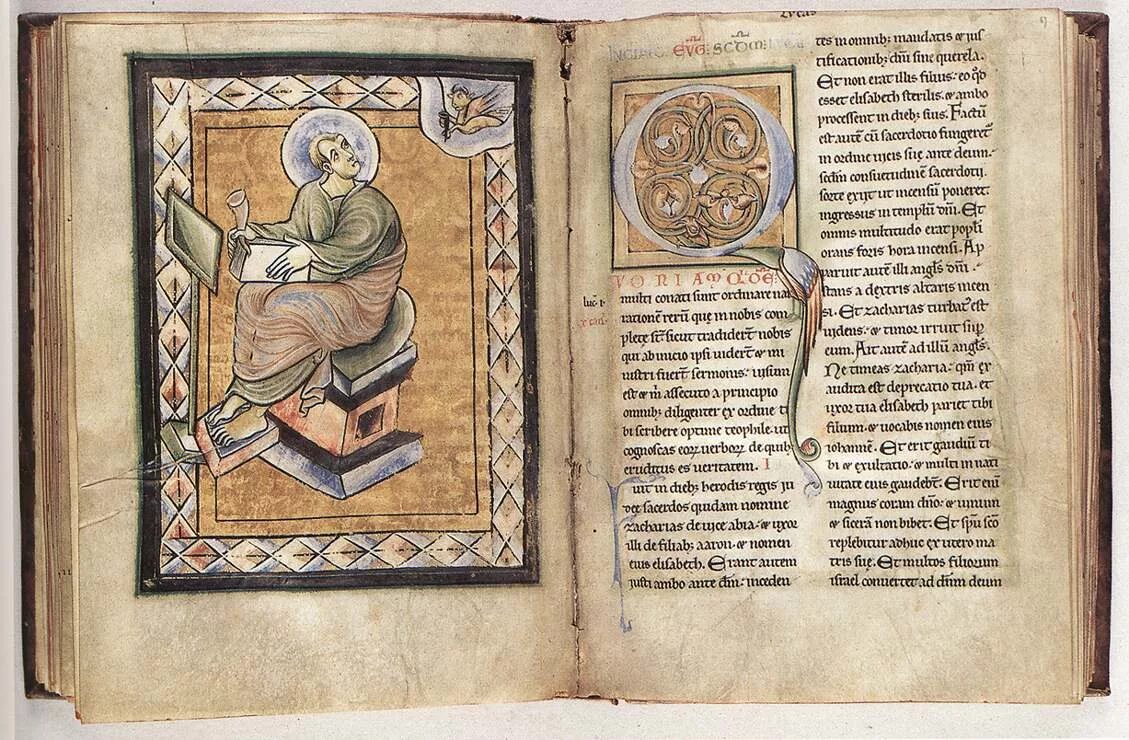 Lucas
INCIPIT EVG̅. SCDM̅. LVCA
Q
VONIAM QVIDE̅
multi conati sunt ordinare nar
ratione̅ rerū que in nobis com
plete st̅. sicut tradider̅t nobis
qui ab inicio ipsi uider̅t & mi
nistri fuer̅t sermonis. uisum
est & m̅ assecuto a principio
omnib; diligenter ex ordine ti
bi scribere optime teophile. ut
cognoscas eoꝝ uerboꝝ de quib;
eruditus es ueritatem. I
Fuit in dieb; herodis regis iu
dee sacerdos quidam nomine
zacharias de uice abia. & uxor
illi de filiab; aaron. & nomen
eius elisabeth. Erant autem
iusti ambo ante dm̅. inceden
tes in omnib; mandatis & ius
tificationib; dn̅i sine querela.
Et non erat illis filius. eo qd̅
esset elisabeth sterilis. & ambo
processent in dieb; suis. Factū
est aute̅ cū sacerdotio fungeret᷑
in ordine uicis sue ante deum.
scd̅m consuetudine̅ sacerdotii
sorte exiit ut incensū poneret.
ingressus in templū dn̅i. Et
omnis multitudo erat popl̅i
orans foris hora incensi. Ap
paruit aute̅ illi angl̅s dn̅i.
stans a dextris altaris incen
si. Et zacharias turbat᷑ est
uidens. & timor irruit sup̅
eum. Ait aute̅ ad illū angl̅s.
Ne timeas zacharia. qm̅ ex
audita est deprecatio tua. et
uxor tua elisabeth pariet tibi
filium. & uocabis nomen eius
iohanne̅. Et erit gaudiū ti
bi & exultatio. & multi in nati
uitate eius gaudebt̅. Erit eni̅
magnus coram dn̅o. & uinum
& sicera̅ non bibet. Et sp̅u sc̅o
replebitur adhuc ex utero ma
tris sue. Et multos filiorum
israel conuertet ad dn̅m deum